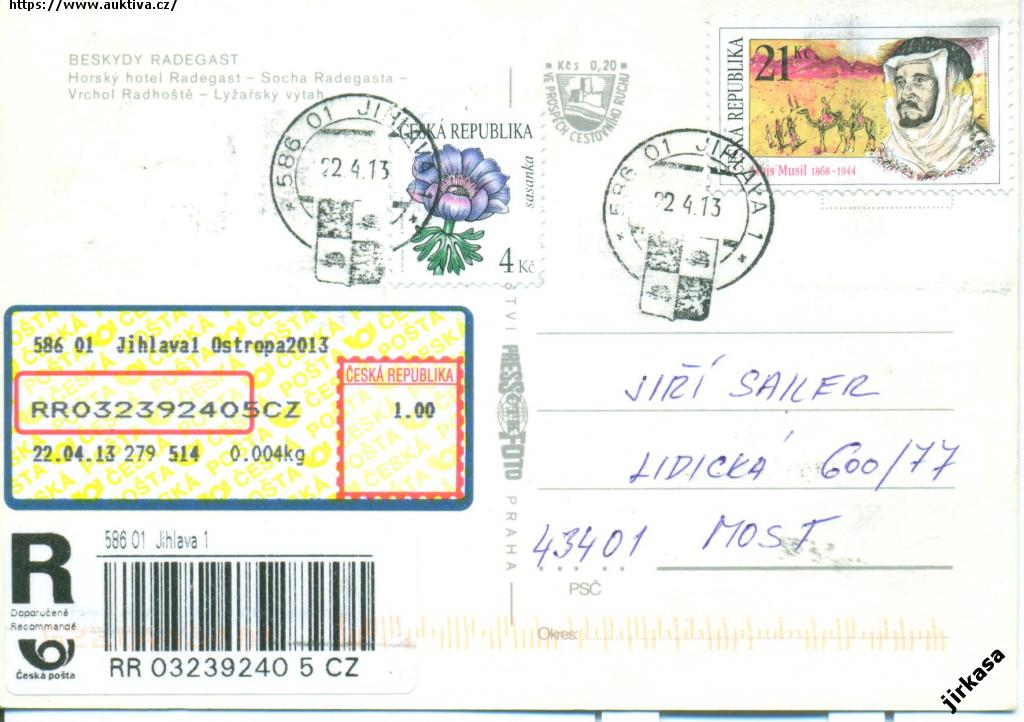 https://www.auktiva.cz/
BESKYDY RADEGAST
Horský hotel Radegast – Socha Radegasta –
Vrchol Radhoště – Lyžařský výtah
Kčs 0,20
VE PROSPĚCH CESTOVNÍHO RUCHU
21 Kč
ČESKÁ REPUBLIKA
Alois Musil 1868 - 1944
586 01 JIHLAVA 1
22.4.13
ČESKÁ REPUBLIKA
sasanka
4 Kč
586 01 JIHLAVA 1
22.4.13
586 01 Jihlava1 Ostropa2013
ČESKÁ REPUBLIKA
RR032392405CZ
1.00
22.04.13 279 514 0.004kg
PRESSFOTO PRAHA
JIŘÍ SAILER
LIDICKÁ 600/77
43401 MOST
PSČ
Okres:
R
586 01 Jihlava 1
Doporučeně
Recommandé
Česká pošta
RR 03239240 5 CZ
jirkasa